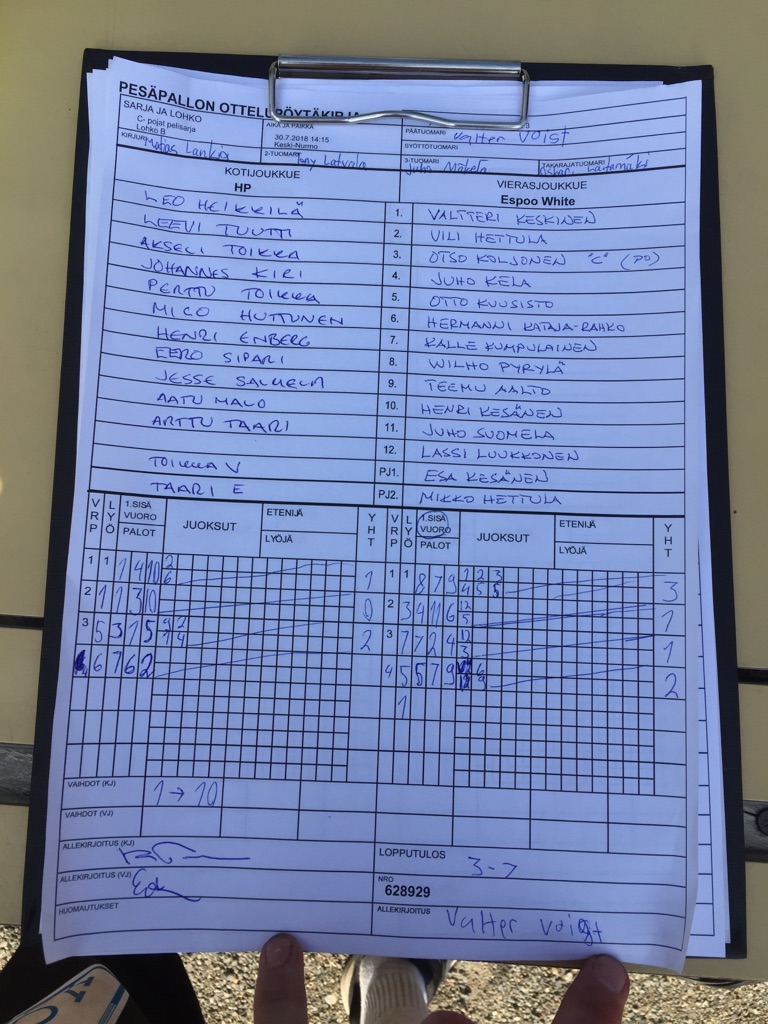 PESÄPALLON OTTELUPÖYTÄKIRJA
SARJA JA LOHKO
C- pojat pelisarja
Lohko B
AIKA JA PAIKKA
30.7.2018 14:15
Keski-Nurmo
PÄÄTUOMARI
Valter Voigt
SYÖTTÖTUOMARI
KIRJURI
Lankia
2-TUOMARI
Tony Latvala
3-TUOMARI
Juho Mäkelä
TAKARAJATUOMARI
KOTIJOUKKUE
HP
VIERASJOUKKUE
Espoo White
LEO HEIKKILÄ 1. VALTTERI KESKINEN
LEEVI TUUTTI 2. VILI HETTULA
AKSELI TOIKKA 3. OTSO KOLJONEN "C" (PO)
JOHANNES KIRI 4. JUHO KELA
PERTTU TOIKKA 5. OTTO KUUSISTO
MICO HUTTUNEN 6. HERMANNI KATAJA-RAHKO
HENRI ENBERG 7. KALLE KUMPULAINEN
EERO SIPARI 8. WILHO PYRYLÄ
JESSE 9. TEEMU AALTO
AATU MALO 10. HENRI KESÄNEN
ARTTU TAARI 11. JUHO SUOMELA
12. LASSI LUUKKONEN
TOIKKA V PJ1. ESA KESÄNEN
TAARI E PJ2. MIKKO HETTULA
VRP LYÖ 1.SISÄ VUORO PALOT JUOKSUT ETENIJÄ LYÖJÄ YHT VRP LYÖ 1.SISÄ VUORO PALOT JUOKSUT ETENIJÄ LYÖJÄ YHT
1 1 1 4 10 2 6 1 1 1 8 7 9 1 2 3 4 5 5 3
2 1 1 3 10 0 2 3 4 11 6 12 5 1
3 5 3 1 5 2 3 7 7 2 4 12 3 1
4 6 7 6 2 4 5 5 7 9 2
1
VAIHDOT (KJ) 1 → 10
VAIHDOT (VJ)
ALLEKIRJOITUS (KJ)
LOPPUTULOS 3-7
ALLEKIRJOITUS (VJ)
NRO
628929
HUOMAUTUKSET
ALLEKIRJOITUS Valter Voigt